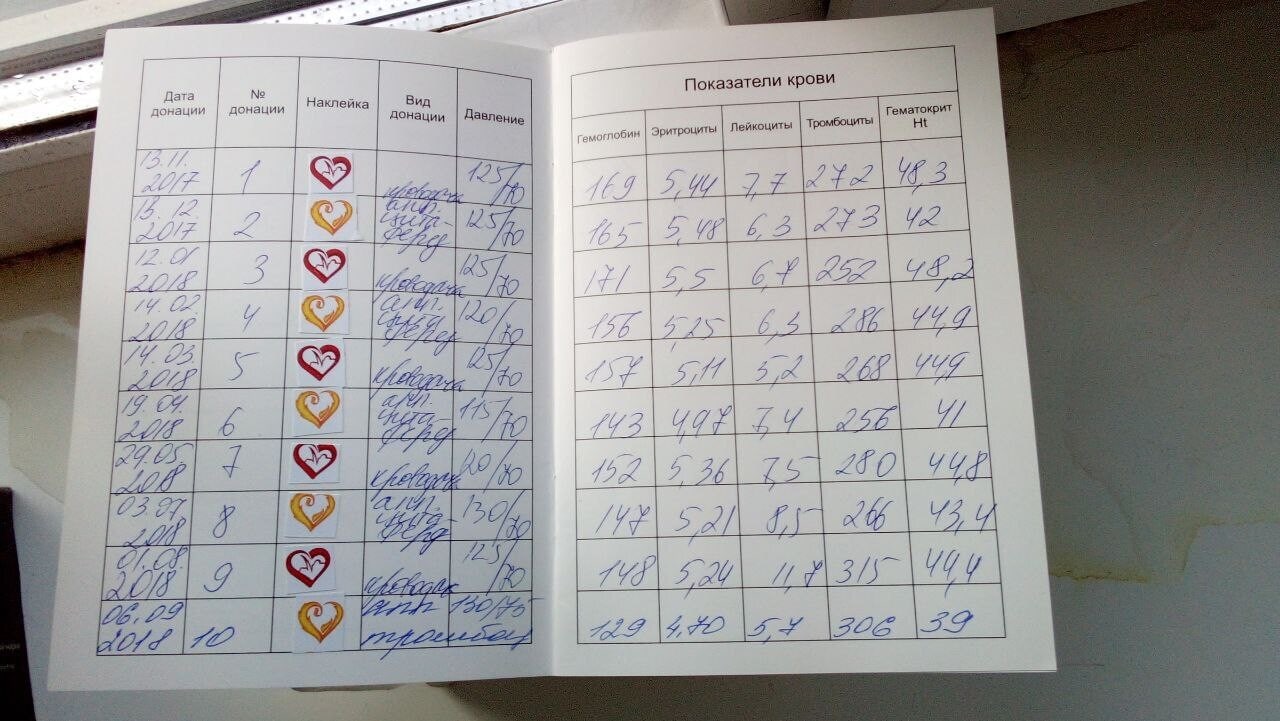 Показатели крови
Дата донации № донации Наклейка Вид донации Давление Гемоглобин Эритроциты Лейкоциты Тромбоциты Гематокрит Ht
13.11. 2017 1 кроводача 125/70 169 5,44 7,7 272 48,3
13.12. 2017 2 апп. цита- ферез 125/70 165 5,48 6,3 273 42
12.01 2018 3 кроводача 125/70 171 5,5 6,7 252 48,2
14.02. 2018 4 апп. цита ферез 120/70 156 5,25 6,3 286 44,9
14.03. 2018 5 кроводача 125/70 157 5,11 5,2 268 44,9
19.04. 2018 6 апп. цита- ферез 115/70 143 4,97 7,4 256 41
29.05 2018 7 кроводача 120/70 152 5,36 7,5 280 44,8
03.07. 2018 8 апп. цита- ферез 130/70 147 5,21 8,5 266 43,4
01.08. 2018 9 кроводач 125/70 148 5,24 11,7 315 44,4
06.09 2018 10 апп тромбоц 130/75 129 4,70 5,7 306 39